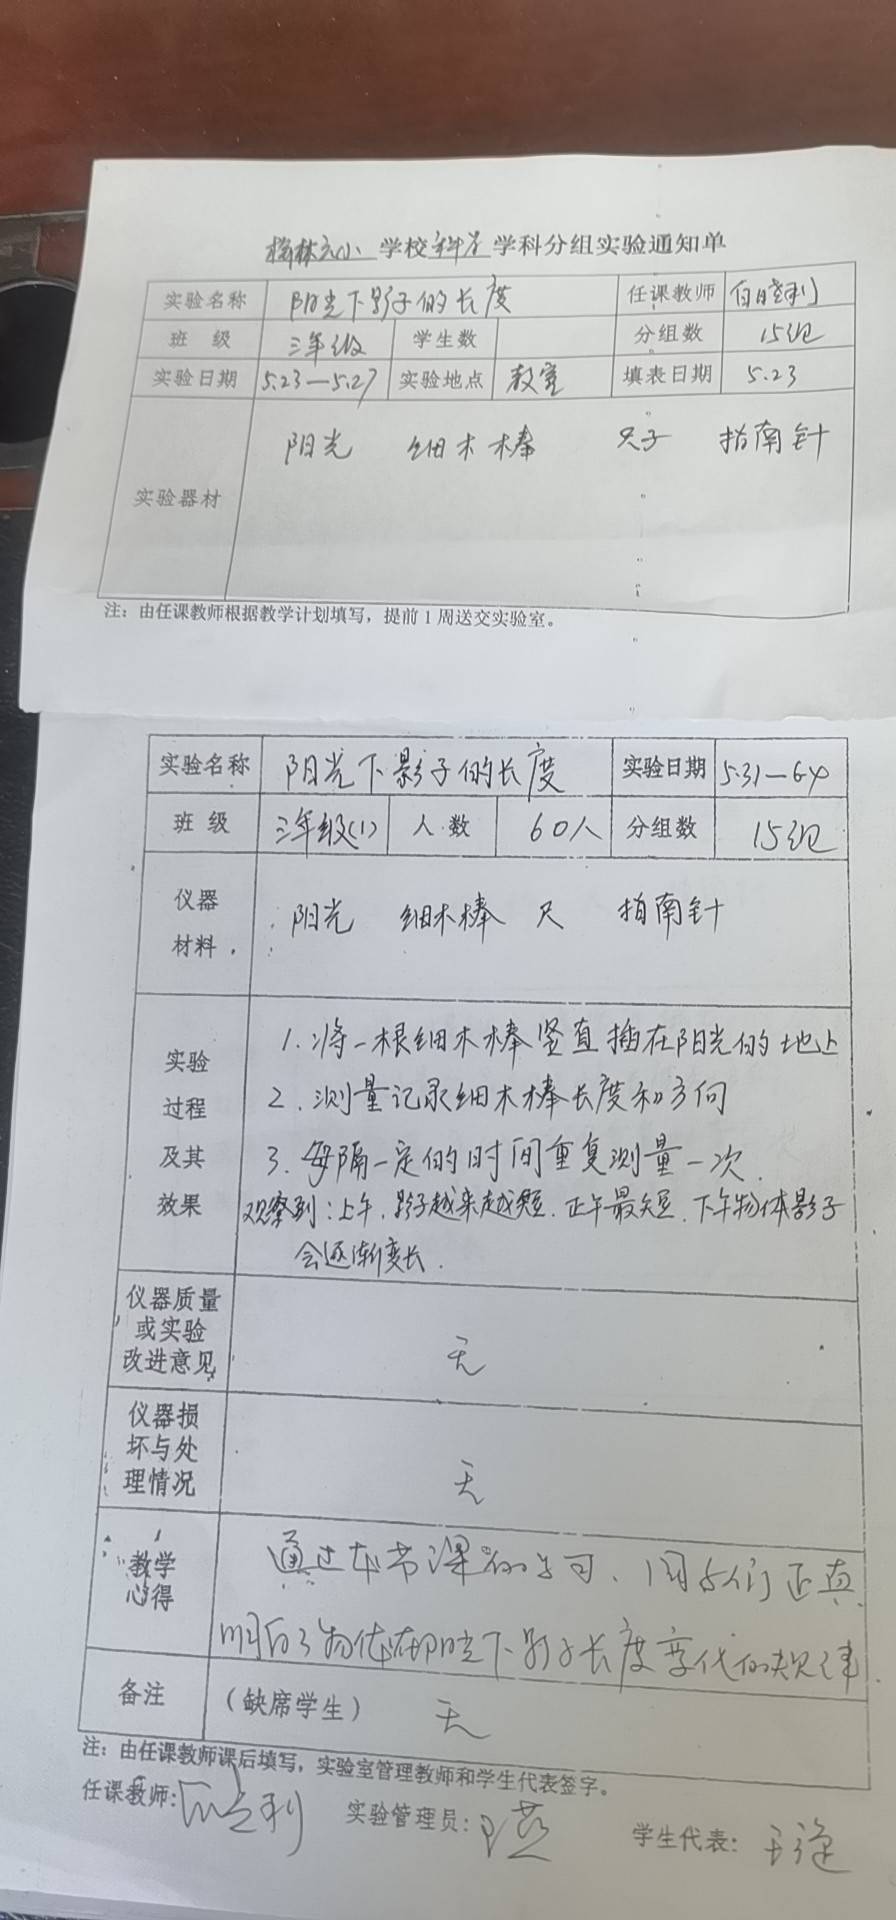 学校科学学科分组实验通知单
实验名称 阳光下影子的长度 任课教师
班 级 三年级 学生数 分组数 15组
实验日期 5.23—5.27 实验地点 教室 填表日期 5.23
实验器材 阳光 细木棒 尺子 指南针
注：由任课教师根据教学计划填写，提前1周送交实验室。
实验名称 阳光下影子的长度 实验日期 5.31—6.4
班 级 三年级(1) 人数 60人 分组数 15组
仪器
材料 阳光 细木棒 尺 指南针
实验
过程
及其
效果
1.将一根细木棒竖直插在阳光的地上
2.测量记录细木棒长度和方向
3.每隔一定的时间重复测量一次.
观察到:上午,影子越来越短.正午最短.下午物体影子
会逐渐变长.
仪器质量
或实验
改进意见
无
仪器损
坏与处
理情况
无
教学
心得
通过本节课的学习、同学们正真
明白了物体在阳光下影子长度变化的规律
备注 (缺席学生) 无
注：由任课教师课后填写，实验室管理教师和学生代表签字。
任课教师: 实验管理员: 学生代表: